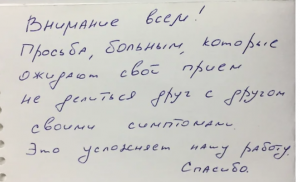 Внимание всем!
Просьба, больным, которые
ожидают свой прием
не делиться друг с другом
своими симптомами.
Это усложняет нашу работу.
Спасибо.